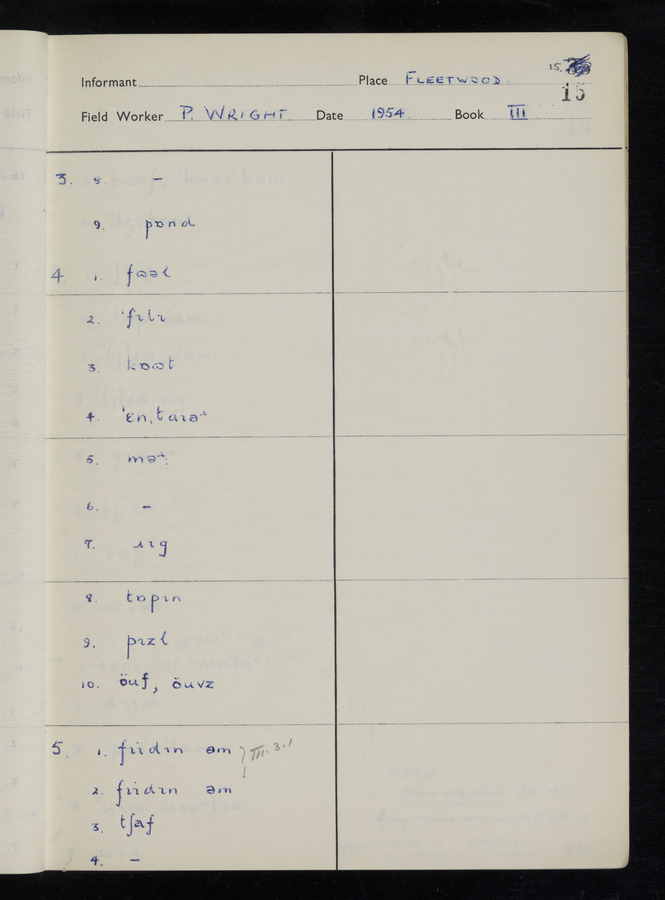 Informant Place FLEETWOOD. 15.
15
Field Worker P. WRIGHT Date 1954 Book III
3. 8. –
9. pɒnd
4. 1. fɷəl
2. ˈfɪlɪ
3. kɒɷt
4. ˈɛnˌtaɪə˞
5. mə˞:
6. –
7. ɹɪg
8. tɒpɪn
9. pɪzl
10. öuf, öuvz
5. 1. fɪidɪn əm III. 3.1
2. fɪidɪn əm
3. tʃaf
4. –